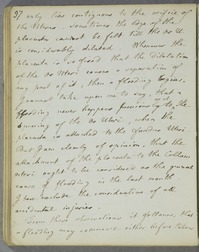 37 only lies contiguous to the orifice of
the Uterus. Sometimes the edge of the
placenta cannot be felt till the os U.
is considerably dilated. Whenever the
placenta is so fixed that the dilatation
of the os Uteri causes a separation of
any part of it, then a flooding begins.
I cannot take upon me to say, that a
flooding never happens previous to the
opening of the os Uteri, when the
placenta is attached to the fundus Uteri
But I am clearly of opinion, that the
attachment of the placenta to the Collum
uteri ought to be considered as the general
cause of flooding in the last month
I here exclude the consideration of
accidental injuries.
From these observations it follows, that
a flooding may commence either before labour